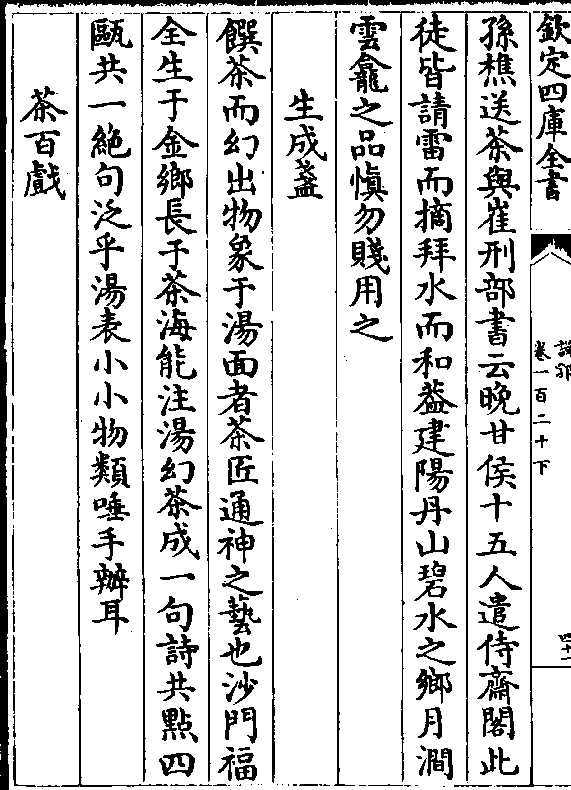 欽定四庫全書
說郛
卷一百二十下
四十二
孫樵送茶與崔刑部書云晚甘侯十五人遣侍齋閣此
徒皆請雷而摘拜水而和葢建陽丹山碧水之鄉月澗
雲龕之品慎勿賤用之
生成盞
饌茶而幻出物象于湯面者茶匠通神之藝也沙門福
全生于金鄉長于茶海能注湯幻茶成一句詩共點四
甌共一絶句泛乎湯表小小物類唾手辦耳
茶百戲